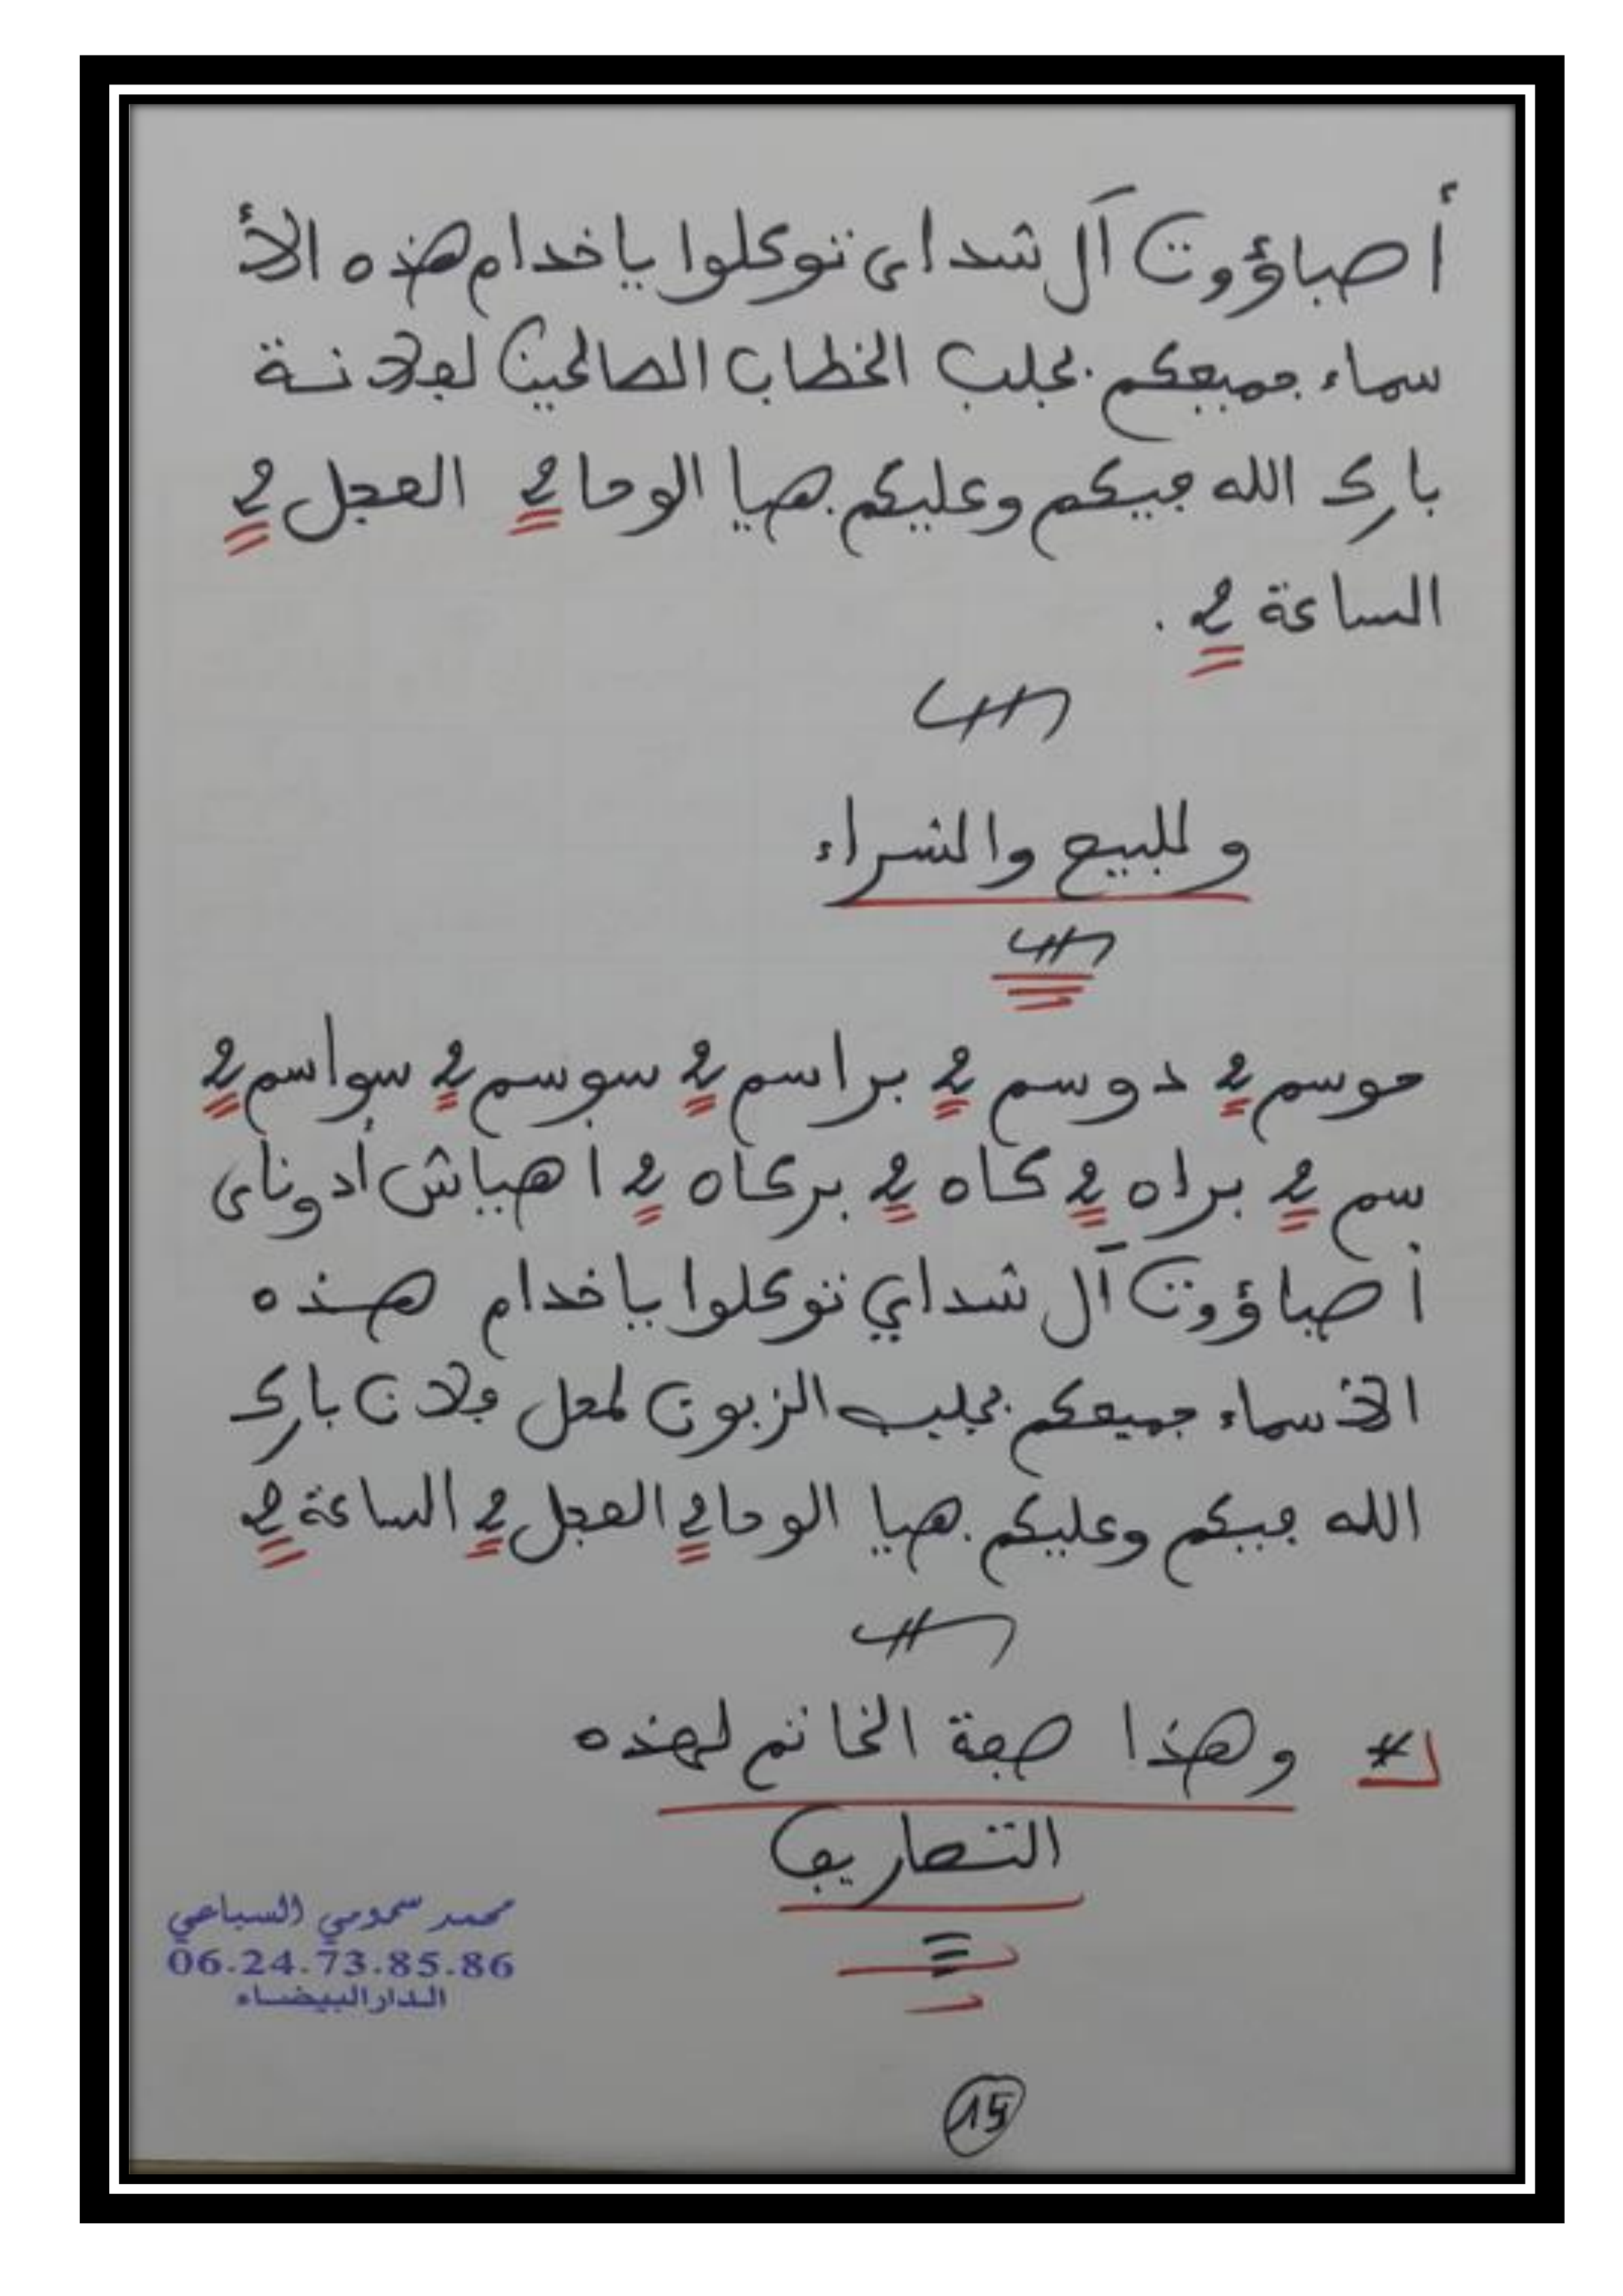 أصباؤوت آل شداى توكلوا ياخدام هذه الأ
سماء جميعكم بجلب الخطاب الصالحين لفلانة
بارك الله فيكم وعليكم هيا الوحا 2 العجل 2
الساعة 2 .
وللبيع والشراء
موسم 2 دوسم 2 براسم 2 سوسم 2 سواسم 2
سم 2 براه 2 كاه 2 بركاه 2 اهياش أدوناى
أصباؤوت آل شداي توكلوا ياخدام هذه
الأسماء جميعكم بجلب الزبون لمحل فلان بارك
الله فيكم وعليكم هيا الوحا 2 العجل 2 الساعة 2
* وهذا صفة الخاتم لهذه
التصاريف
محمد سمومي السباعي
06.24.73.85.86
الدار البيضاء
15